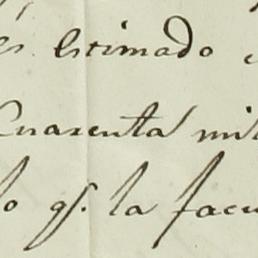 és Estimado
Cuarenta mil
lo qs. la facu